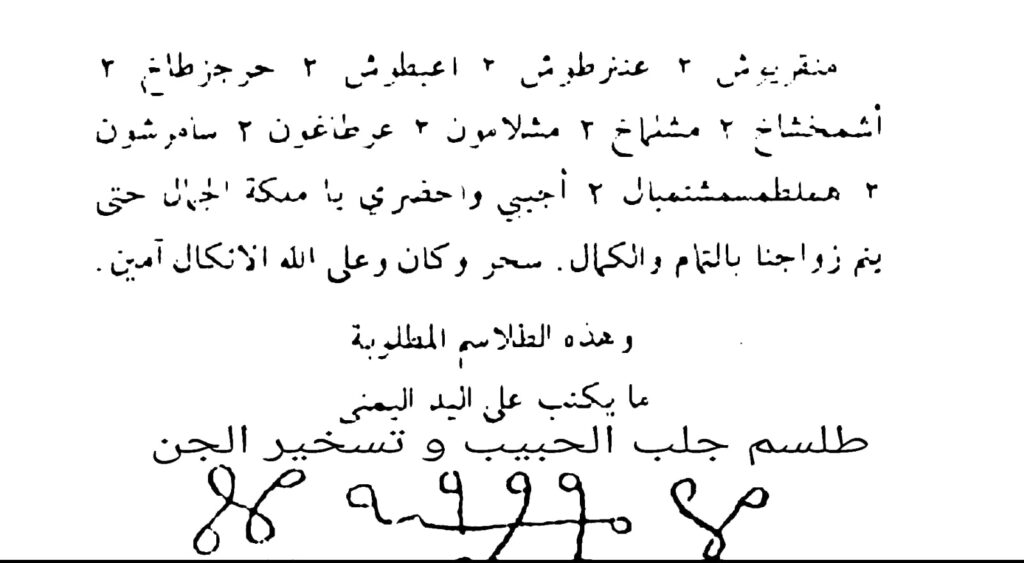 منقريوش ٢ عننرطوش ٢ اعبطوش ٢ حرجزطاخ ٢
أشمخشاخ ٢ مشلماخ ٢ مشلامون ٢ عرطاغون ٢ سامرشون
٢ هملطمسمشتمبال ٢ أجيبي واحضري يا ملكة الجمال حتى
يتم زواجنا بالتمام والكمال. سحر وكان وعلى الله الاتكال آمين.
وهذه الطلاسم المطلوبة
ما يكتب على اليد اليمنى
طلسم جلب الحبيب و تسخير الجن